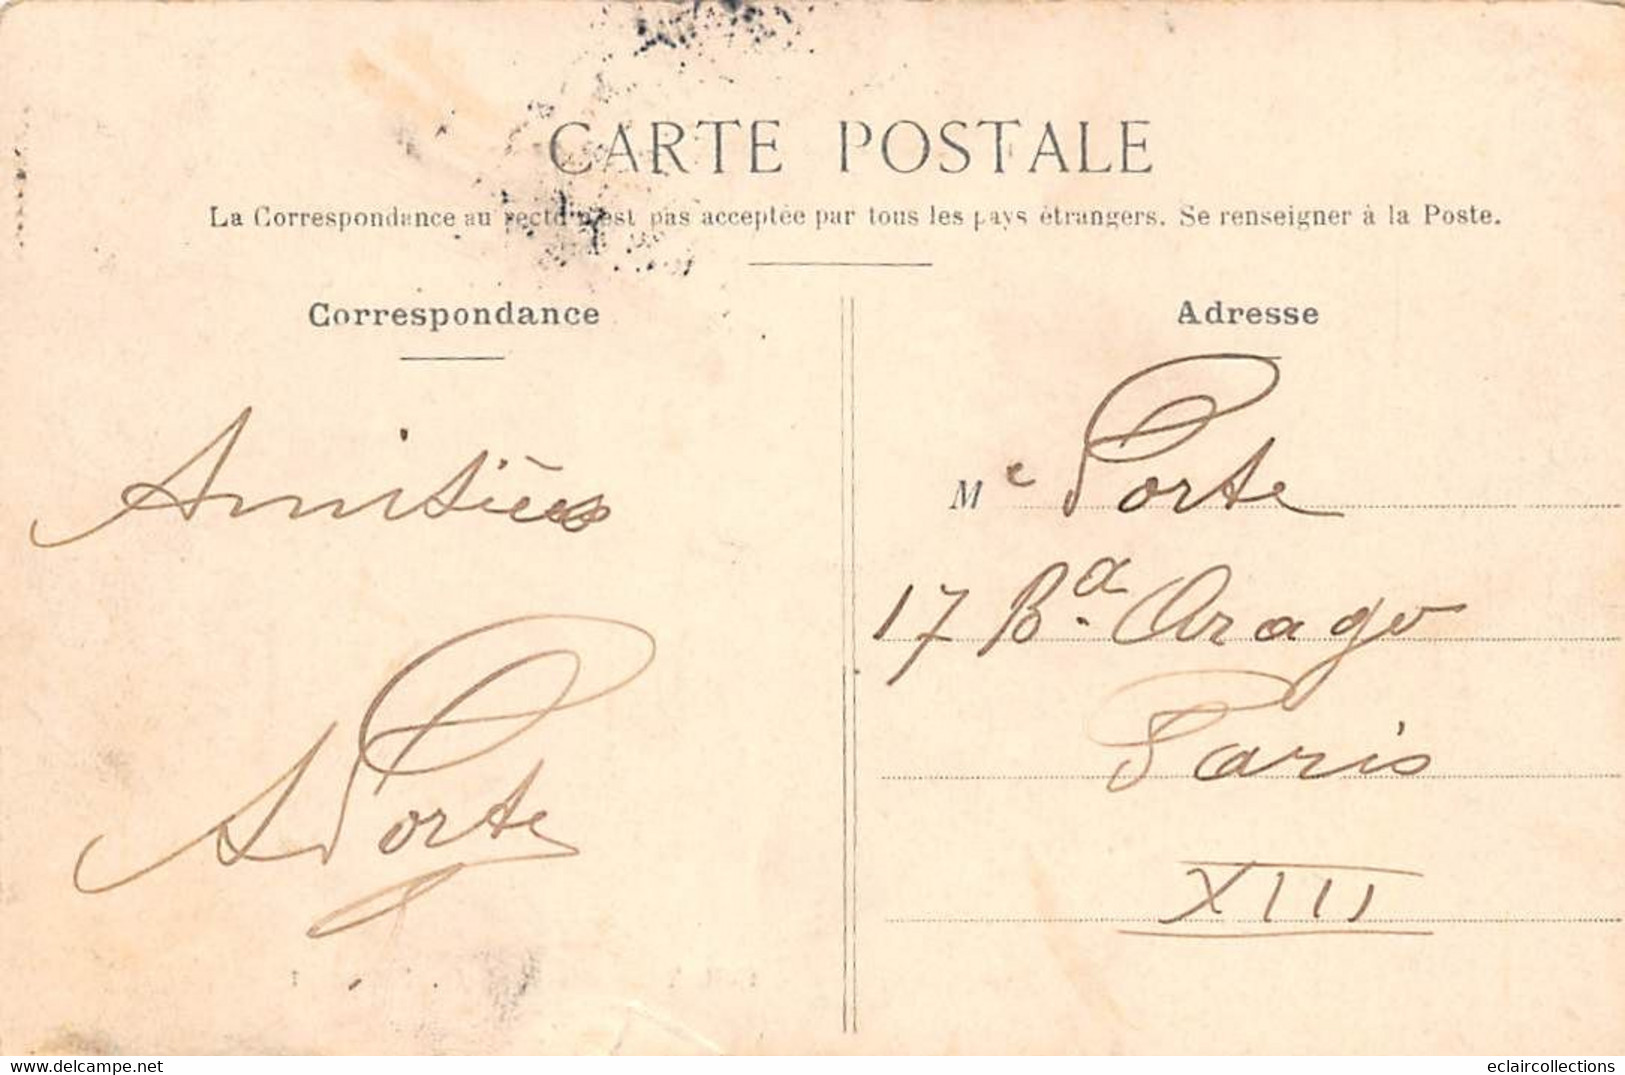 CARTE POSTALE
La Correspondance au recto n'est pas acceptée par tous les pays étrangers. Se renseigner à la Poste.
Correspondance
Amitiés
A Porte
Adresse
Me Porte
17 Bd. Arago
Paris
XIII
delcampe.net
eclaircollections